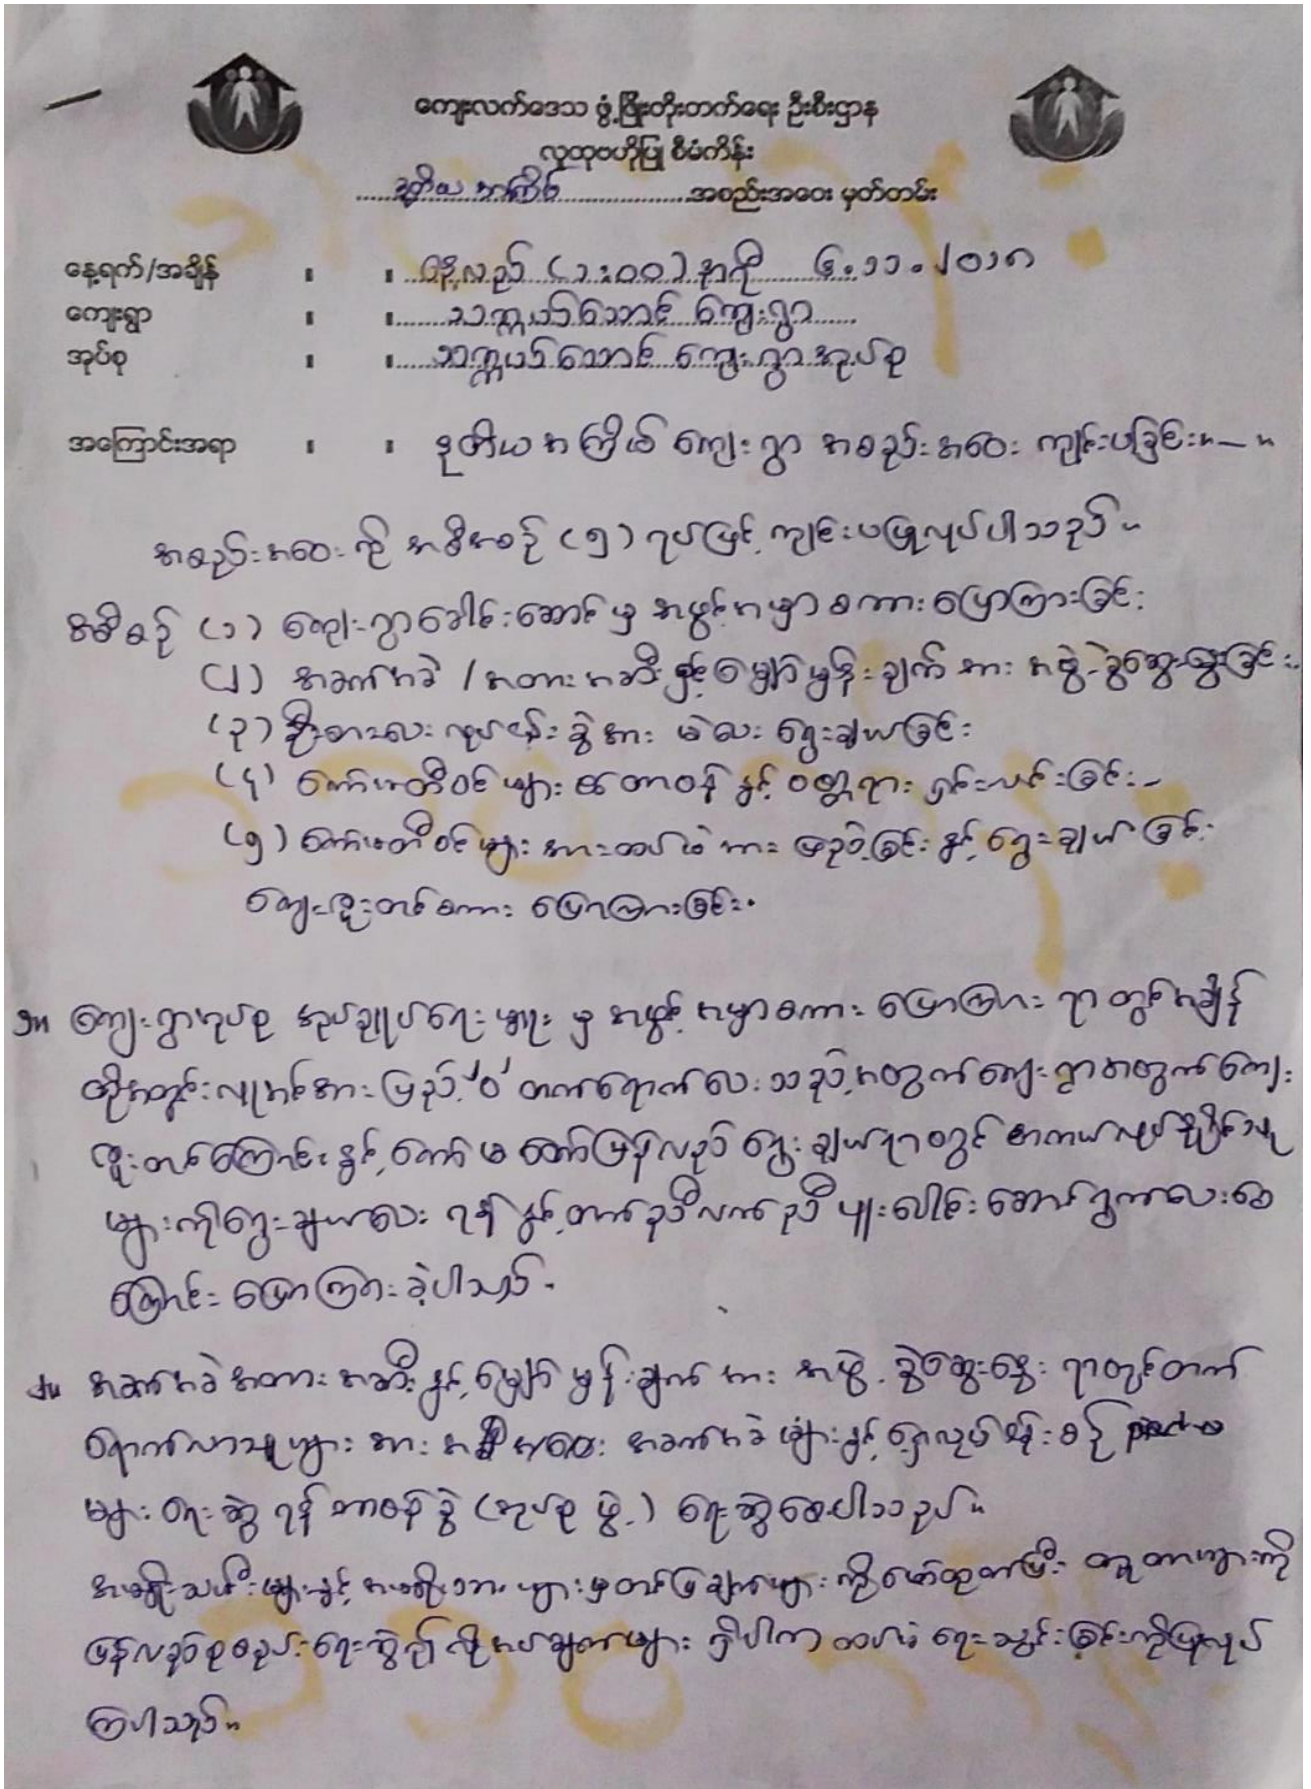 ကျေးလက်ဒေသ ဖွံ့ဖြိုးတိုးတက်ရေး ဦးစီးဌာန
လူထုဗဟိုပြု စီမံကိန်း
ဒုတိယ အကြိမ် အစည်းအဝေး မှတ်တမ်း
နေ့ရက်/အချိန် : : နေ့လည် (၁:၀၀) နာရီ ၆.၁၁.၂၀၁၈
ကျေးရွာ : : သက္ကယ်သောင် ကျေးရွာ
အုပ်စု : : သက္ကယ်သောင် ကျေးရွာအုပ်စု
အကြောင်းအရာ : : ဒုတိယအကြိမ် ကျေးရွာ အစည်းအဝေး ကျင်းပခြင်း။ — ။
အစည်းအဝေးကို အစီအစဉ် (၅) ရပ်ဖြင့် ကျင်းပပြုလုပ်ပါသည်။
အစီစဉ် (၁) ကျေးရွာခေါင်းဆောင်မှ အဖွင့်အမှာစကားပြောကြားခြင်း
(၂) အခက်အခဲ / အတားအဆီးနှင့် မျှော်မှန်းချက်အား အဖွဲ့ခွဲဆွေးနွေးခြင်း
(၃) ဦးစားပေး လုပ်ငန်းခွဲအား မဲပေး ရွေးချယ်ခြင်း
(၄) ကော်မတီဝင်များ၏ တာဝန်နှင့် ဝတ္တရား ရှင်းလင်းခြင်း
(၅) ကော်မတီဝင်များ အားထပ်မံအား ဖြည့်ခြင်းနှင့် ရွေးချယ်ခြင်း
ကျေးဇူးတင်စကား ပြောကြားခြင်း။
၁။ ကျေးရွာအုပ်စု အုပ်ချုပ်ရေးမှူးမှ အဖွင့်အမှာစကား ပြောကြားရာတွင် အချိန်
တိုအတွင်း လူအင်အားပြည့်ဝ တက်ရောက်ပေးသည့်အတွက် ကျေးရွာအတွက် ကျေး
ဇူးတင်ကြောင်းနှင့် ပြန်လည် ရွေးချယ်ရာတွင် တကယ်လုပ်နိုင်သူ
များကို ရွေးချယ်ပေးရန်နှင့် တက်ညီလက်ညီ ပူးပေါင်းဆောင်ရွက်ပေးစေ
ကြောင်း ပြောကြားခဲ့ပါသည်။
၂။ အခက်အခဲ အတားအဆီးနှင့် မျှော်မှန်းချက်အား အဖွဲ့ခွဲဆွေးနွေးရာတွင် တက်
ရောက်လာသူများအား အခက်အခဲများနှင့်
များ ရေးဆွဲရန် တာဝန်ခွဲ (အုပ်စုဖွဲ့) ရေးဆွဲစေပါသည်။
အမျိုးသမီးများနှင့် အမျိုးသားများမှ တင်ပြချက်များကို ဖော်ထုတ်ပြီး တူတာများကို
ပြန်လည်စုစည်းရေးဆွဲ၍ လိုအပ်ချက်များ ရှိပါက ထပ်မံ ရေးသွင်းခြင်းကို ပြုလုပ်
ကြပါသည်။